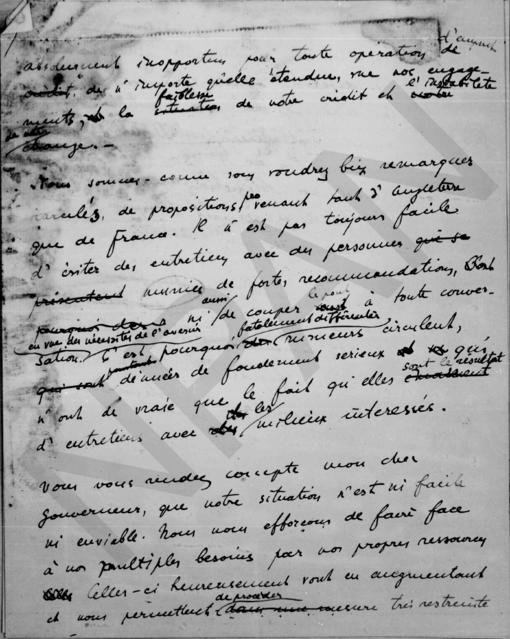 d'emprunt
absolument inopportun pour toute opération de
crédit, de n'importe quelle étendue, vue nos engage-
ments, et la faiblesse situation de notre crédit et l'instabilité
de notre change. —
Nous sommes - comme vous voudrez bien remarquer
harcelés, de propositions venant tant d'Angleterre
que de France. Il n'est pas toujours facile
d'éviter des entretiens avec des personnes qui se
présentent munies de fortes recommandations,
aussi ni de couper le pont à toute conver-
en vue des nécessités de l'avenir fatalement
sation. C'est pourquoi des rumeurs circulent,
qui sont dénuées de fondement serieux et qui
n'ont de vraie que le fait qu'elles sont le résultat
d'entretiens avec les milieux intéressés.
Vous vous rendez compte mon cher
Gouverneur, que notre situation n'est ni facile
ni enviable. Nous nous efforçons de faire face
à nos multiples besoins par nos propres ressources
Celles-ci heureusement vont en augmentant
et nous permettent de procéder dans une mesure très restreinte
NPAN